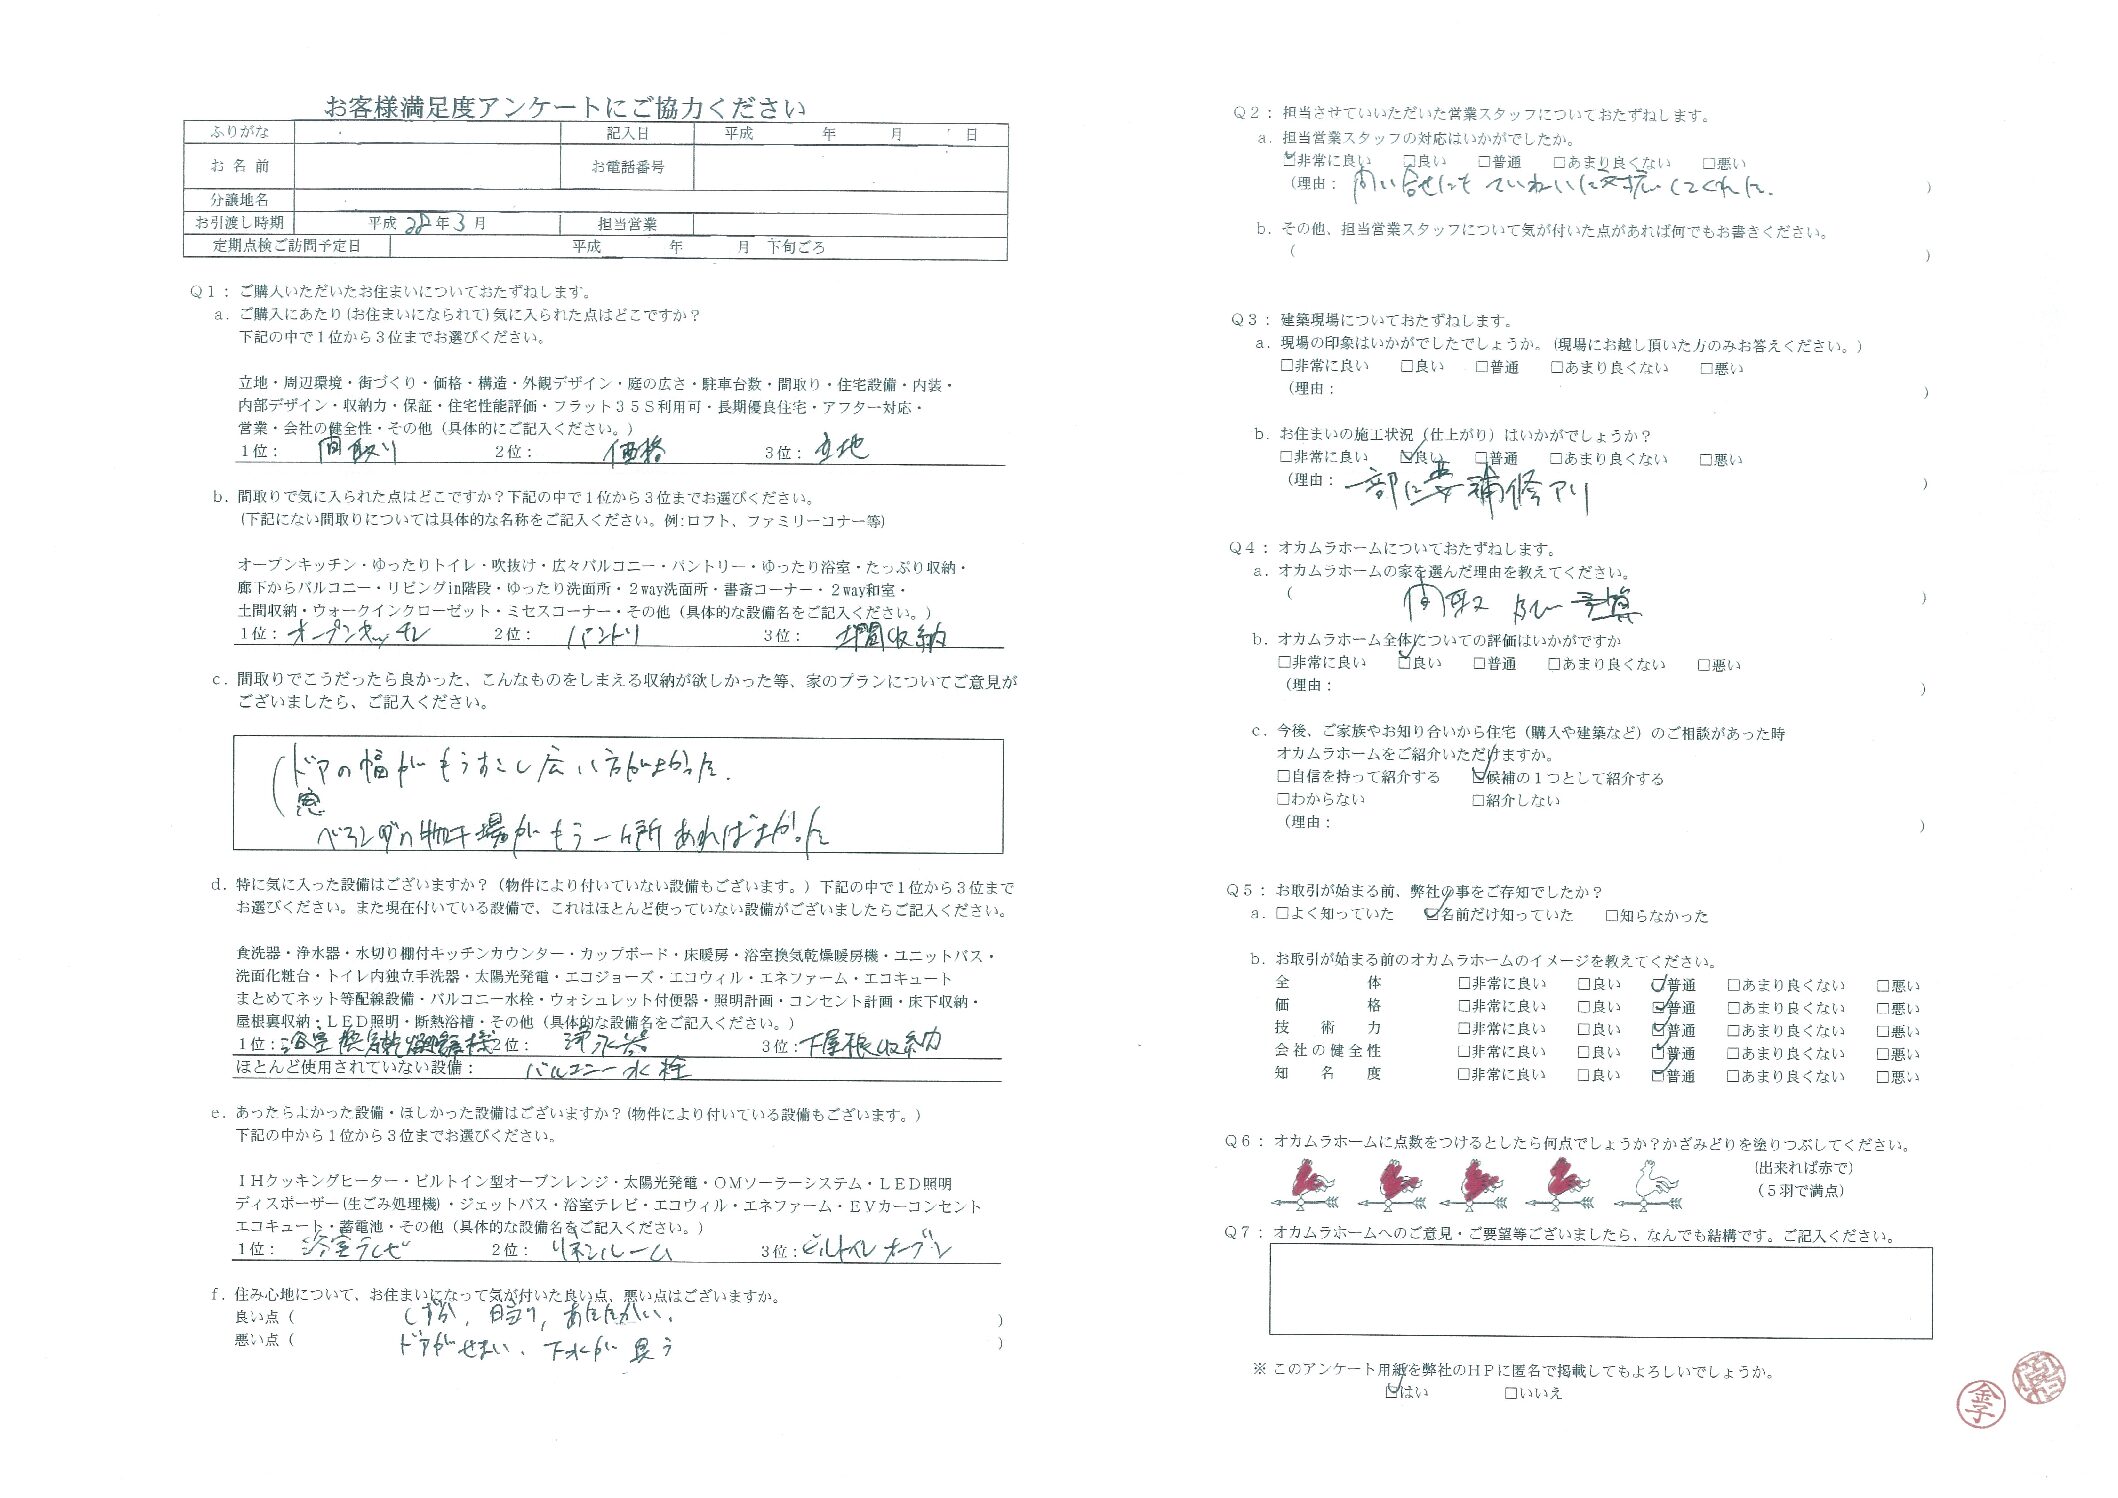 お客様満足度アンケートにご協力ください
ふりがな 記入日 平成 年 月 日
お名前 お電話番号
分譲地名
お引渡し時期 平成28年3月 担当営業
定期点検ご訪問予定日 平成 年 月 下旬ごろ
Q1：ご購入いただいたお住まいについておたずねします。
a．ご購入にあたり(お住まいになられて)気に入られた点はどこですか？
下記の中で1位から3位までお選びください。
立地・周辺環境・街づくり・価格・構造・外観デザイン・庭の広さ・駐車台数・間取り・住宅設備・内装・
内部デザイン・収納力・保証・住宅性能評価・フラット35S利用可・長期優良住宅・アフター対応・
営業・会社の健全性・その他（具体的にご記入ください。）
1位： 間取り 2位： 価格 3位： 立地
b．間取りで気に入られた点はどこですか？下記の中で1位から3位までお選びください。
(下記にない間取りについては具体的な名称をご記入ください。例:ロフト、ファミリーコナー等)
オープンキッチン・ゆったりトイレ・吹抜け・広々バルコニー・パントリー・ゆったり浴室・たっぷり収納・
廊下からバルコニー・リビングin階段・ゆったり洗面所・2way洗面所・書斎コーナー・2way和室・
土間収納・ウォークインクローゼット・ミセスコーナー・その他（具体的な設備名をご記入ください。）
1位： オープンキッチン 2位： パントリ 3位： 土間収納
c．間取りでこうだったら良かった、こんなものをしまえる収納が欲しかった等、家のプランについてご意見が
ございましたら、ご記入ください。
ドアの幅がもうすこし広い方がよかった.
窓
ベランダの物干場がもう一ヶ所あればよかった
d．特に気に入った設備はございますか？（物件により付いていない設備もございます。）下記の中で1位から3位まで
お選びください。また現在付いている設備で、これはほとんど使っていない設備がございましたらご記入ください。
食洗器・浄水器・水切り棚付キッチンカウンター・カップボード・床暖房・浴室換気乾燥暖房機・ユニットバス・
洗面化粧台・トイレ内独立手洗器・太陽光発電・エコジョーズ・エコウィル・エネファーム・エコキュート
まとめてネット等配線設備・バルコニー水栓・ウォシュレット付便器・照明計画・コンセント計画・床下収納・
屋根裏収納・LED照明・断熱浴槽・その他（具体的な設備名をご記入ください。）
1位： 浴室換気乾燥暖房機 2位： 浄水器 3位： 下屋根収納
ほとんど使用されていない設備： バルコニー水栓
e．あったらよかった設備・ほしかった設備はございますか？(物件により付いている設備もございます。）
下記の中から1位から3位までお選びください。
IHクッキングヒーター・ビルトイン型オーブンレンジ・太陽光発電・OMソーラーシステム・LED照明
ディスポーザー(生ごみ処理機)・ジェットバス・浴室テレビ・エコウィル・エネファーム・EVカーコンセント
エコキュート・蓄電池・その他（具体的な設備名をご記入ください。）
1位： 浴室テレビ 2位： リネンルーム 3位： ビルトインオーブン
f．住み心地について、お住まいになって気が付いた良い点、悪い点はございますか。
良い点（ しずか、日当り、あたたかい. ）
悪い点（ ドアがせまい、下水が臭う ）
Q2：担当させていいただいた営業スタッフについておたずねします。
a．担当営業スタッフの対応はいかがでしたか。
☑非常に良い □良い □普通 □あまり良くない □悪い
（理由： 問い合せにもていねいに対応してくれた. ）
b．その他、担当営業スタッフについて気が付いた点があれば何でもお書きください。
（ ）
Q3：建築現場についておたずねします。
a．現場の印象はいかがでしたでしょうか。(現場にお越し頂いた方のみお答えください。)
□非常に良い □良い □普通 □あまり良くない □悪い
（理由： ）
b．お住まいの施工状況（仕上がり）はいかがでしょうか？
□非常に良い ☑良い □普通 □あまり良くない □悪い
（理由： 一部に要補修アリ ）
Q4：オカムラホームについておたずねします。
a．オカムラホームの家を選んだ理由を教えてください。
（ 間取 予算 ）
b．オカムラホーム全体についての評価はいかがですか
□非常に良い ☑良い □普通 □あまり良くない □悪い
（理由： ）
c．今後、ご家族やお知り合いから住宅（購入や建築など）のご相談があった時
オカムラホームをご紹介いただけますか。
□自信を持って紹介する ☑候補の1つとして紹介する
□わからない □紹介しない
（理由： ）
Q5：お取引が始まる前、弊社の事をご存知でしたか？
a．□よく知っていた ☑名前だけ知っていた □知らなかった
b．お取引が始まる前のオカムラホームのイメージを教えてください。
全体 □非常に良い □良い ☑普通 □あまり良くない □悪い
価格 □非常に良い □良い ☑普通 □あまり良くない □悪い
技術力 □非常に良い □良い ☑普通 □あまり良くない □悪い
会社の健全性 □非常に良い □良い ☑普通 □あまり良くない □悪い
知名度 □非常に良い □良い ☑普通 □あまり良くない □悪い
Q6：オカムラホームに点数をつけるとしたら何点でしょうか？かざみどりを塗りつぶしてください。
(出来れば赤で)
（5羽で満点）
Q7：オカムラホームへのご意見・ご要望等ございましたら、なんでも結構です。ご記入ください。
※このアンケート用紙を弊社のHPに匿名で掲載してもよろしいでしょうか。
☑はい □いいえ
金子